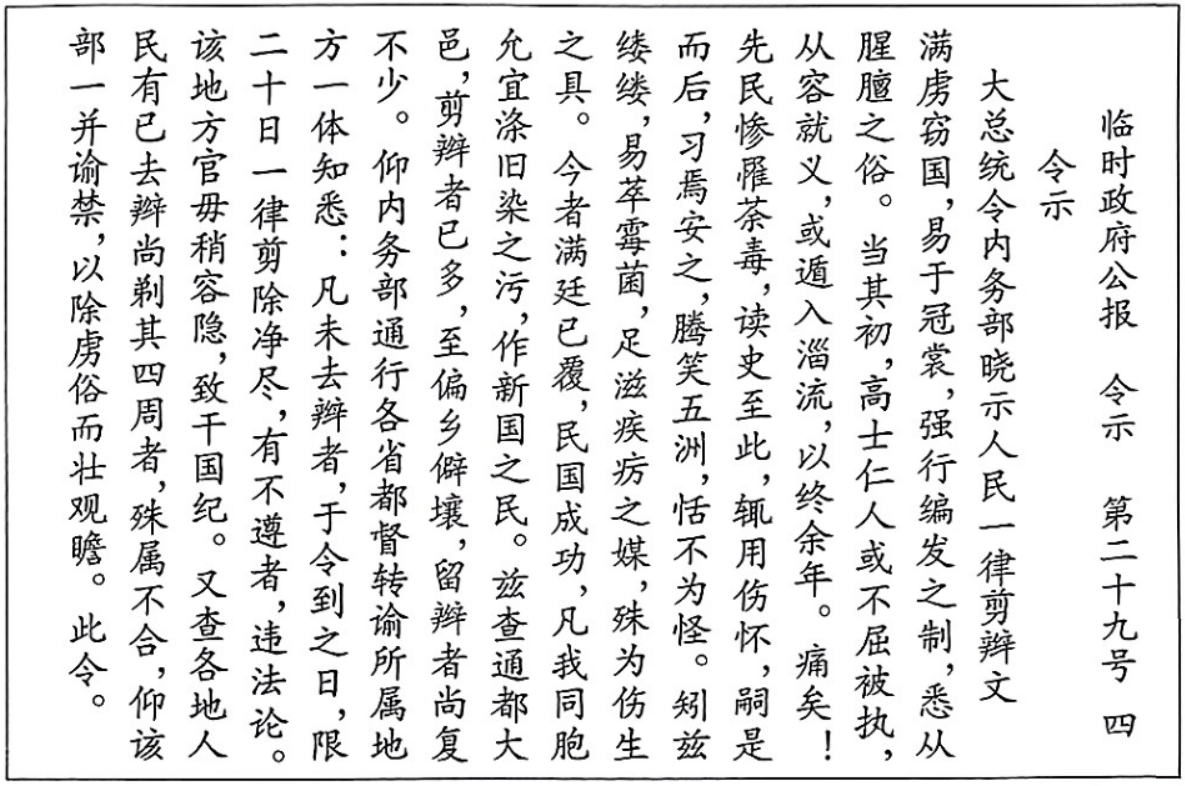 临时政府公报 令示 第二十九号 四
令示
大总统令内务部晓示人民一律剪辫文
满虏窃国，易于冠裳，强行编发之制，悉从
腥膻之俗。当其初，高士仁人或不屈被执，
从容就义，或遁入淄流，以终余年。痛矣！
先民惨罹荼毒，读史至此，辄用伤怀，嗣是
而后，习焉安之，腾笑五洲，恬不为怪。矧兹
缕缕，易萃霉菌，足滋疾疠之媒，殊为伤生
之具。今者满廷已覆，民国成功，凡我同胞
允宜涤旧染之污，作新国之民。兹查通都大
邑，剪辫者已多，至偏乡僻壤，留辫者尚复
不少。仰内务部通行各省都督转谕所属地
方一体知悉：凡未去辫者，于令到之日，限
二十日一律剪除净尽，有不遵者，违法论。
该地方官毋稍容隐，致干国纪。又查各地人
民有已去辫尚剃其四周者，殊属不合，仰该
部一并谕禁，以除虏俗而壮观瞻。此令。